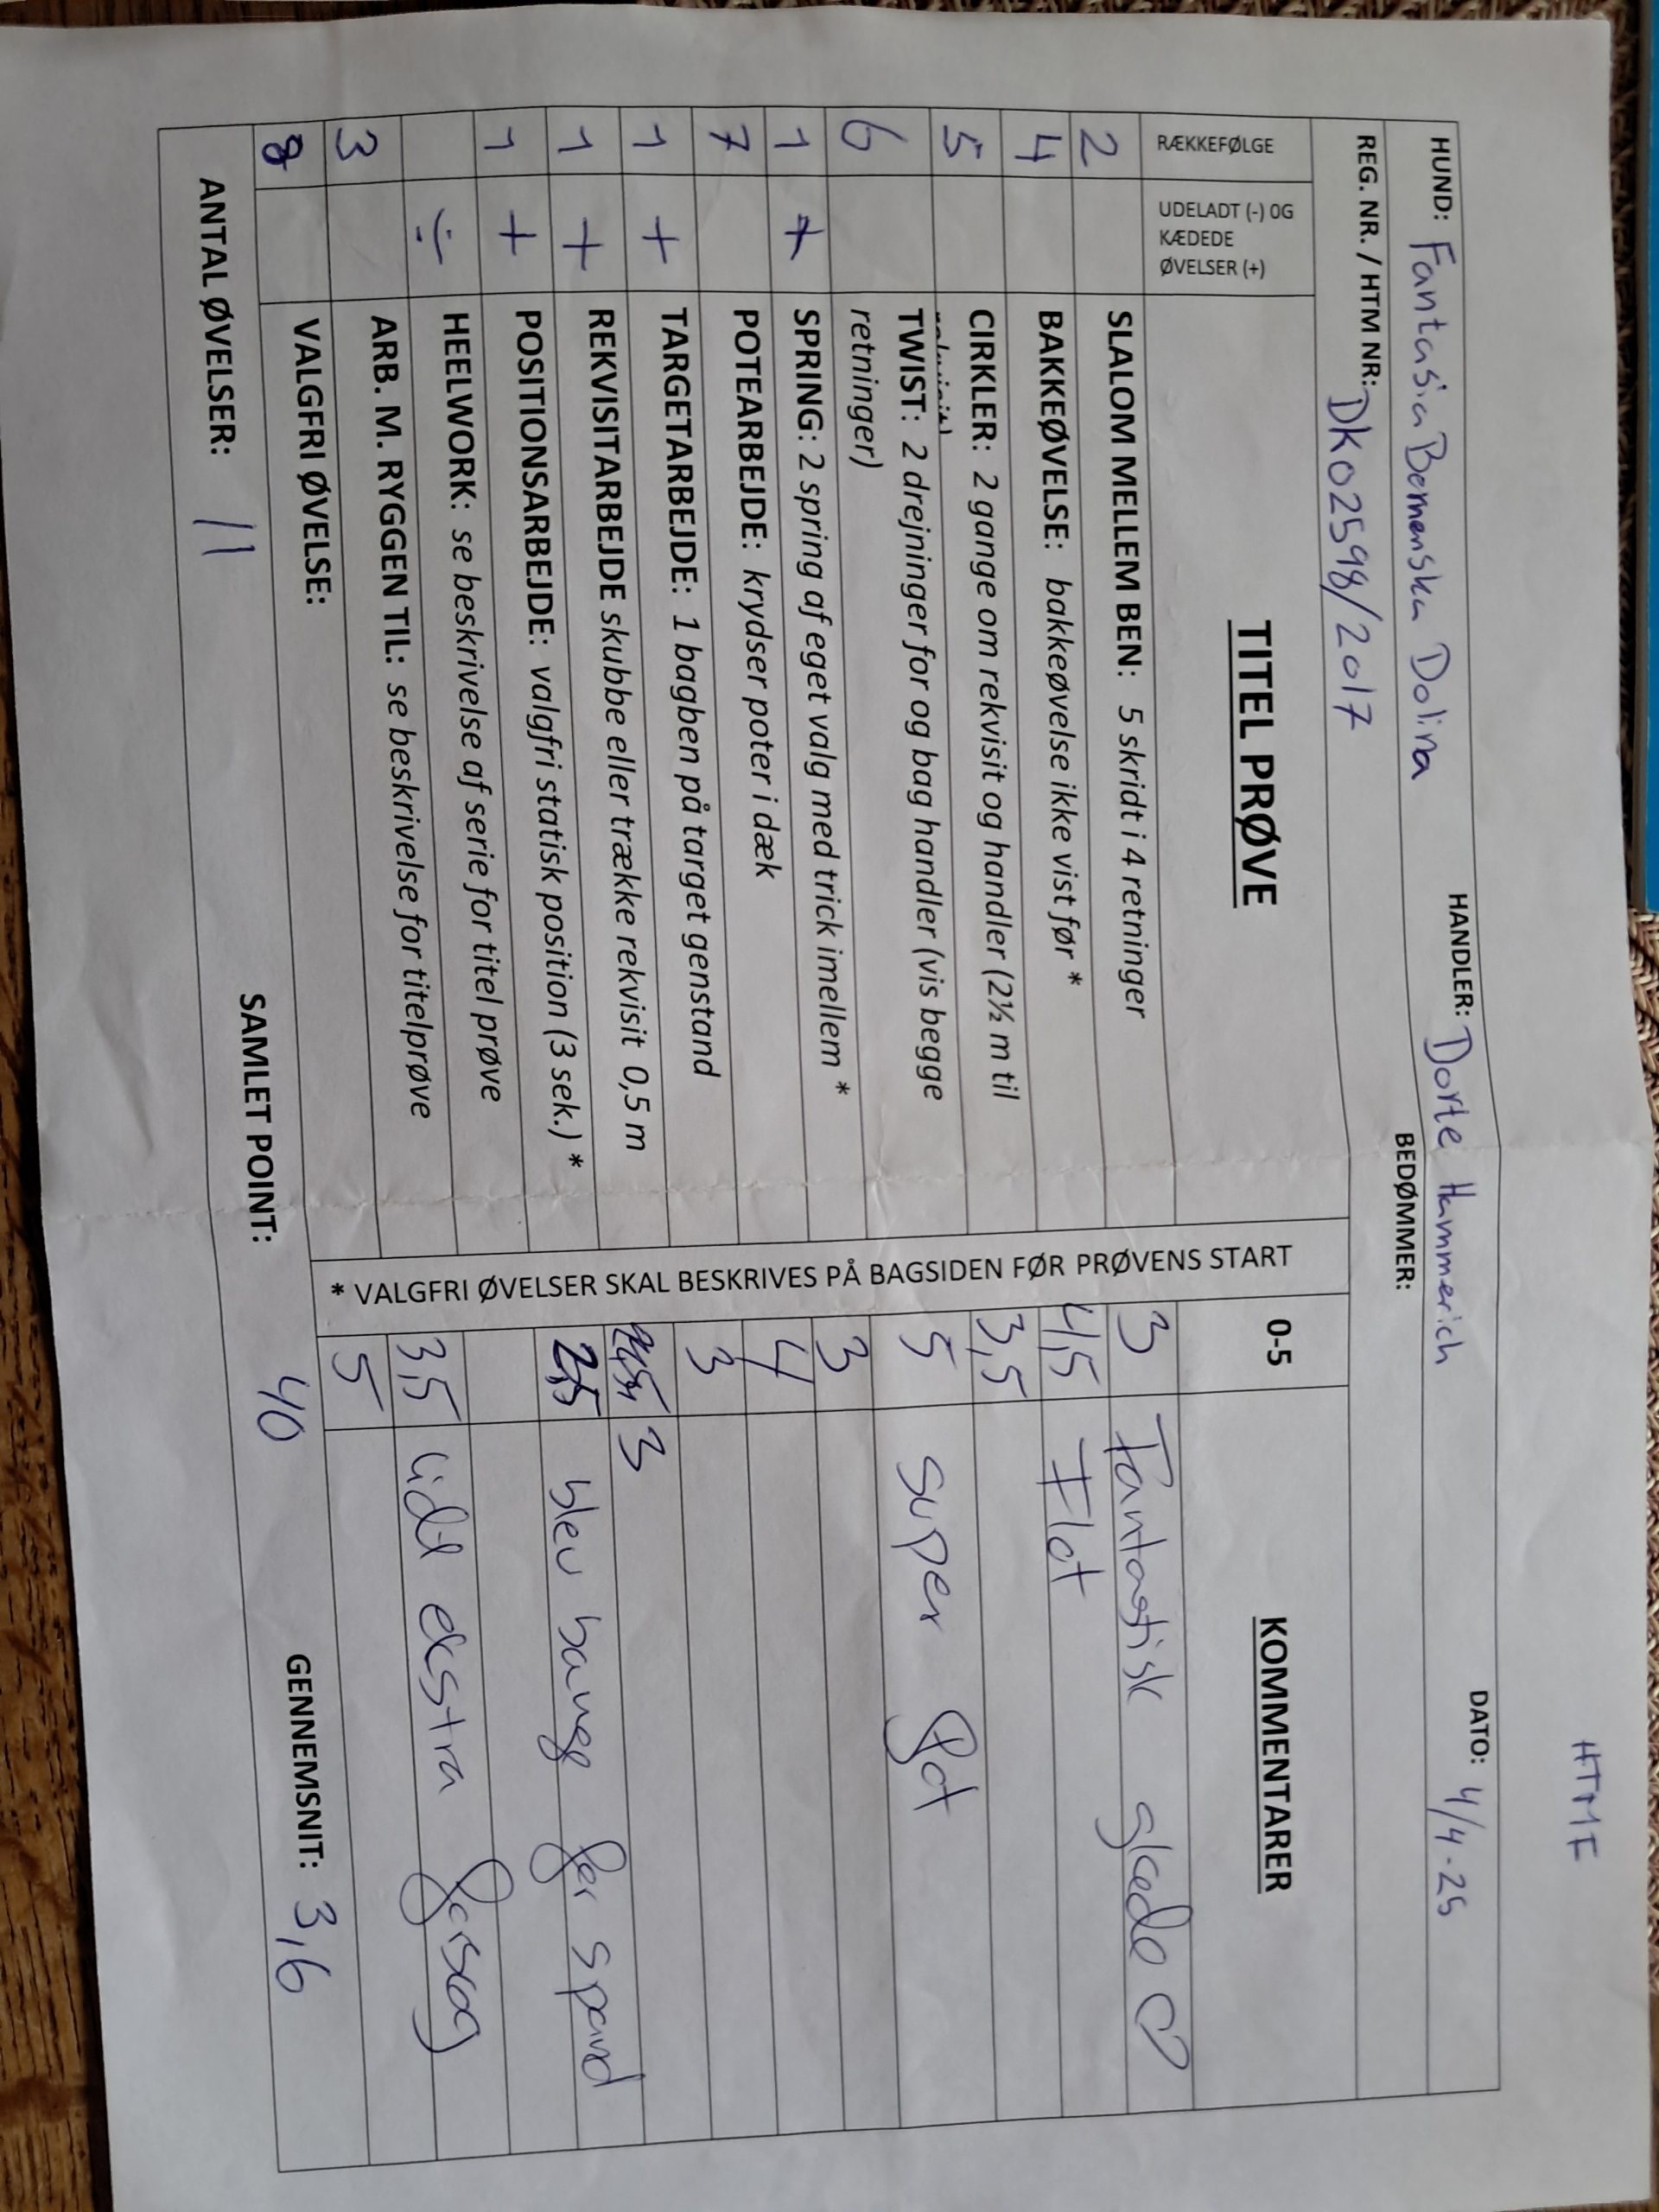 HTMF
HUND: Fantasia Bemenska Dolina HANDLER: Dorte Hammerich DATO: 4/4-25
REG. NR. / HTM NR: DK02598/2017 BEDØMMER:
RÆKKEFØLGE UDELADT (-) OG KÆDEDE ØVELSER (+) TITEL PRØVE 0-5 KOMMENTARER
* VALGFRI ØVELSER SKAL BESKRIVES PÅ BAGSIDEN FØR PRØVENS START
2 SLALOM MELLEM BEN: 5 skridt i 4 retninger 3 Fantastisk glæde
4 BAKKEØVELSE: bakkeøvelse ikke vist før * 4,5 Flot
5 CIRKLER: 2 gange om rekvisit og handler (2½ m til 3,5
rekvisit)
6 TWIST: 2 drejninger for og bag handler (vis begge 5 super flot
retninger)
1 + SPRING: 2 spring af eget valg med trick imellem * 3
7 POTEARBEJDE: krydser poter i dæk 4
1 + TARGETARBEJDE: 1 bagben på target genstand 3
1 + REKVISITARBEJDE skubbe eller trække rekvisit 0,5 m 3
1 + POSITIONSARBEJDE: valgfri statisk position (3 sek.) * 2,5 blev bange for spand
÷ HEELWORK: se beskrivelse af serie for titel prøve
3 ARB. M. RYGGEN TIL: se beskrivelse for titelprøve 3,5 lidt ekstra forsøg
8 VALGFRI ØVELSE: 5
ANTAL ØVELSER: 11 SAMLET POINT: 40 GENNEMSNIT: 3,6